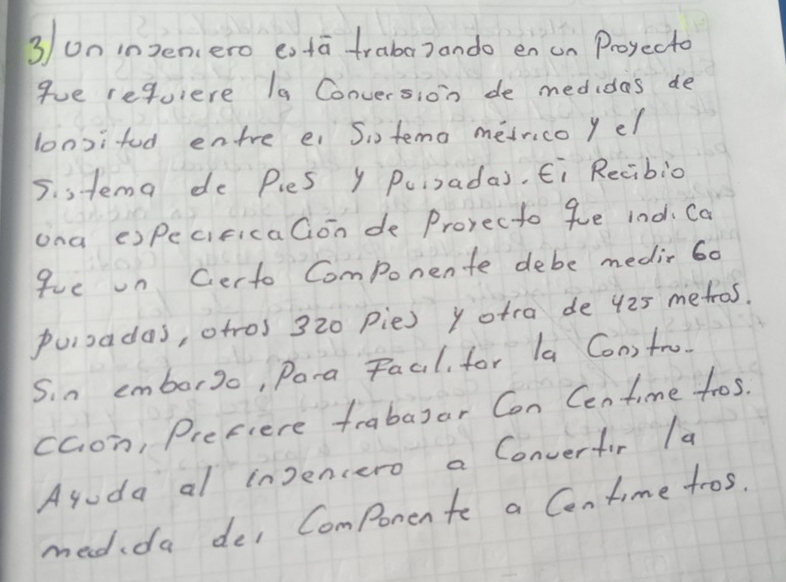 3) Un ingeniero está trabajando en un Proyecto
que requiere la Conversión de medidas de
longitud entre el Sistema métrico y el
Sistema de Pies y Pulgadas. El Recibio
una especificación de Proyecto que indica
que un Cierto Componente debe medir 60
pulgadas, otros 320 Pies y otra de 425 metros.
Sin embargo, Para Facilitar la Constru-
cción, Prefiere trabajar Con Centimetros.
Ayuda al ingeniero a Convertir la
medida del Componente a Centimetros.